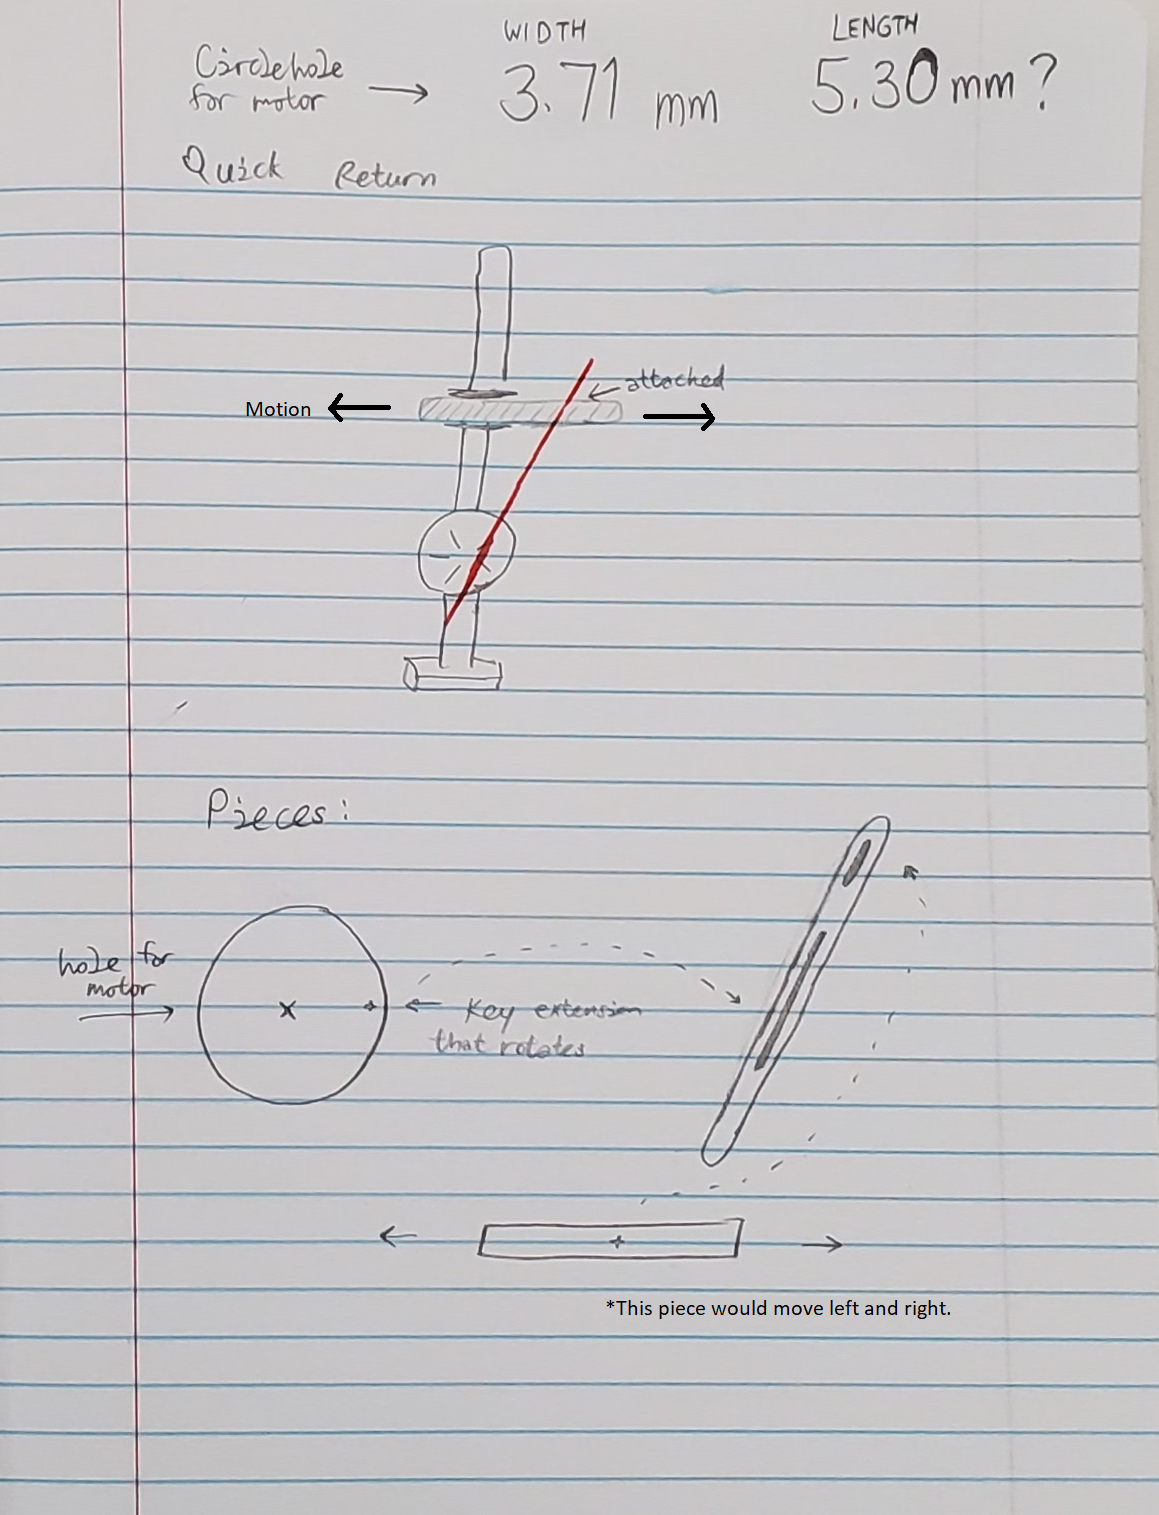 WIDTH LENGTH
Circle hole
for motor → 3.71 mm 5.30 mm?
Quick Return
attached
Motion
Pieces:
hole for
motor
x
Key extension
that rotates
*This piece would move left and right.